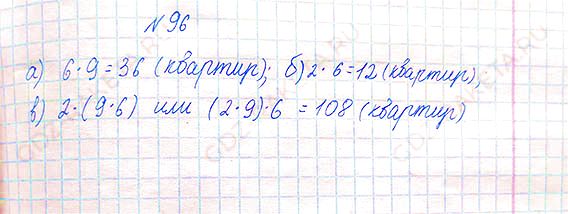 №96
а) 6·9=36 (квартир); б) 2·6=12 (квартир),
в) 2·(9·6) или (2·9)·6 =108 (квартир)